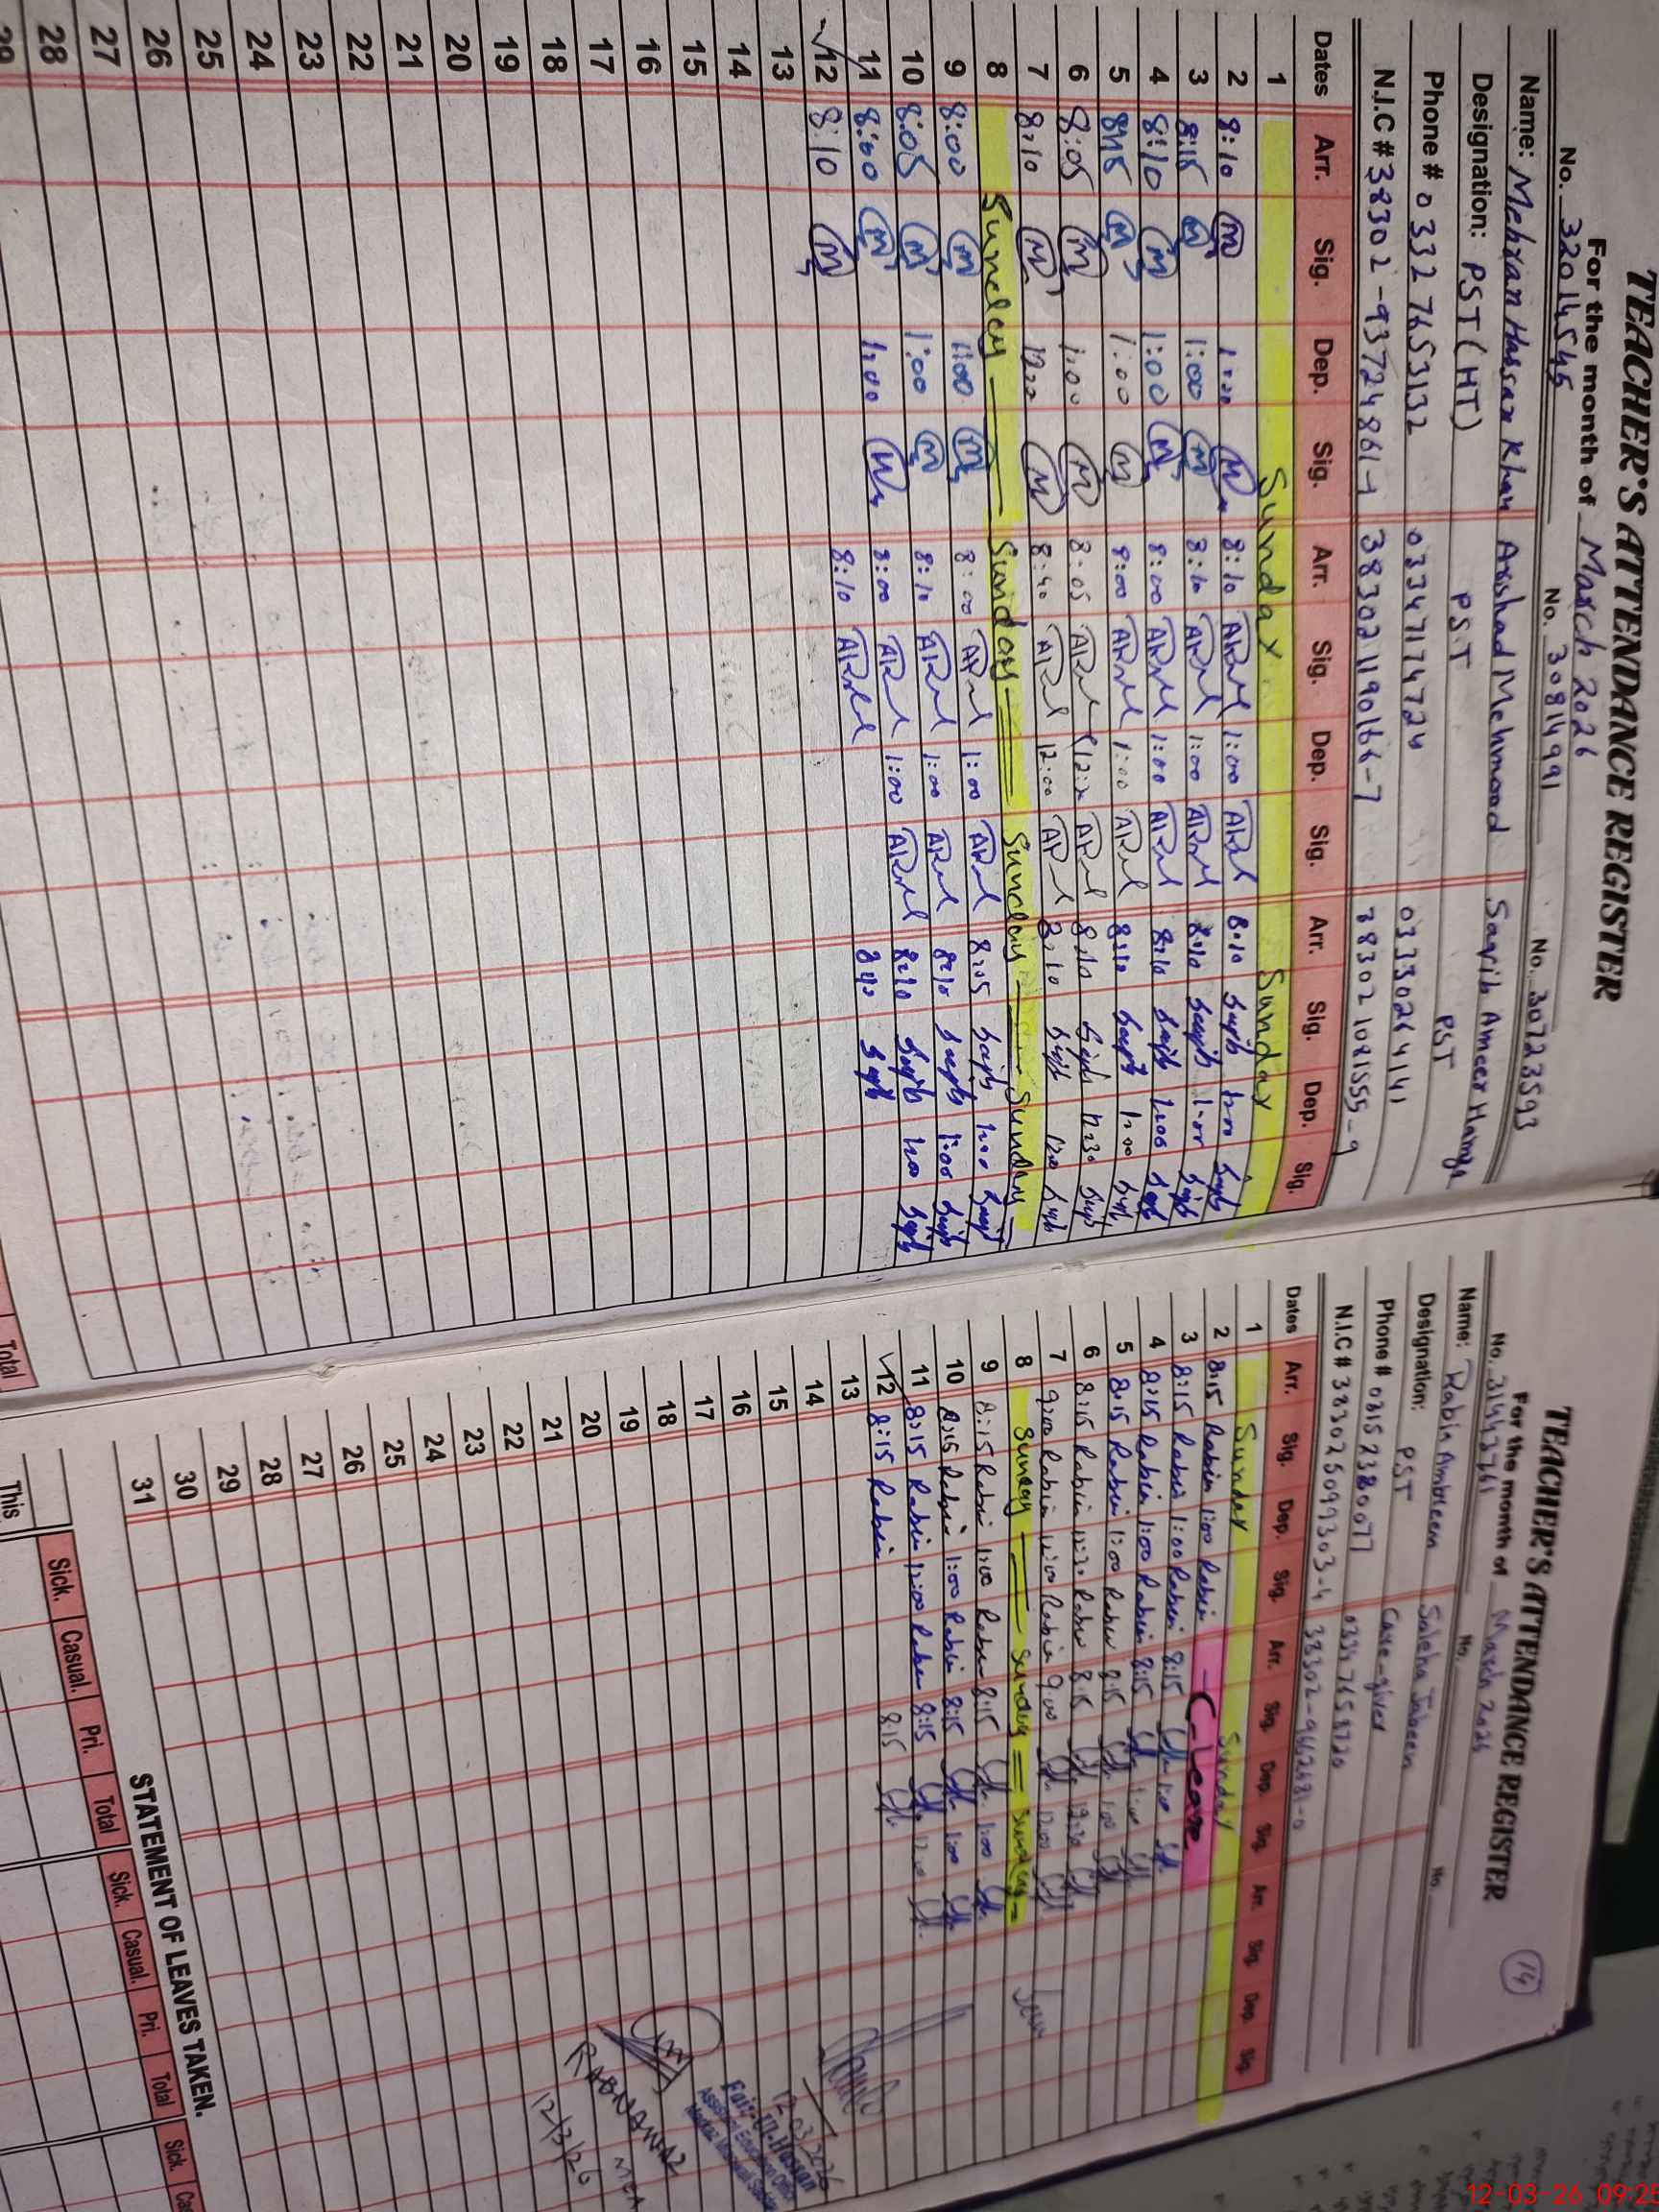 TEACHER'S ATTENDANCE REGISTER
For the month of March 2026
No. 32014545 No. 30814991 No. 30723593
Name: Mehran Hassan Khan Arishad Mehmood Saqib Ameer Hamza
Designation: PST (HT) P.S.T PST
Phone # 0332 7653132 03347174724 03330264141
N.I.C # 38302-93724861-1 38302 1190166-7 38302 1081555-9
Dates Arr. Sig. Dep. Sig. Arr. Sig. Dep. Sig. Arr. Sig. Dep. Sig.
1 Sunday Sunday
2 8:10 M 1:00 M 8:10 1:00 8:10 Saqib 1:00 Saqib
3 8:15 M 1:00 M 8:10 1:00 8:10 Saqib 1:00 Saqib
4 8:10 M 1:00 M 8:00 1:00 8:10 Saqib 1:00 Saqib
5 8:15 M 1:00 M 8:00 1:00 8:10 Saqib 1:00 Saqib
6 8:05 M 1:00 M 8:05 8:10 Saqib 12:30 Saqib
7 8:10 M M 8:40 12:00 8:10 Saqib Saqib
8 Sunday Sunday Sunday Sunday
9 8:00 M 1:00 M 8:00 1:00 8:05 Saqib 1:00 Saqib
10 8:05 M 1:00 M 8:10 1:00 8:10 Saqib 1:00 Saqib
11 8:00 M 1:00 M 8:00 1:00 8:10 Saqib 1:00 Saqib
12 8:10 M 8:10 Saqib
13
14
15
16
17
18
19
20
21
22
23
24
25
26
27
28
29
Total
TEACHER'S ATTENDANCE REGISTER
14
For the month of March 2026
No. 31443761 No. No.
Name: Rabia Ambreen Saleha Jabeen
Designation: PST Care-giver
Phone # 0315 2380077 0334 7658720
N.I.C # 38302 5099303-4 38302-9462681-0
Dates Arr. Sig. Dep. Sig. Arr. Sig. Dep. Sig. Arr. Sig. Dep. Sig.
1 Sunday Sunday
2 8:15 Rabia 1:00 Rabia C-Leave
3 8:15 Rabia 1:00 Rabia 8:15 1:00
4 8:15 Rabia 1:00 Rabia 8:15 1:00
5 8:15 Rabia 1:00 Rabia 8:15 1:00
6 8:15 Rabia Rabia 8:15 12:30
7 9:00 Rabia Rabia 9:00 12:00
8 Sunday Sunday Sunday
9 8:15 Rabia 1:00 Rabia 8:15 1:00
10 8:15 Rabia 1:00 Rabia 8:15 1:00
11 8:15 Rabia 12:00 Rabia 8:15 12:00
12 8:15 Rabia 8:15
13
14
15
16
17
18
19
20
21
22
23
24
25
26
27
28
29
30
31
12.03.2026
Faiz-ul-Hassan
Assistant Education Officer
RABNAWAZ
MEA
12/3/26
STATEMENT OF LEAVES TAKEN.
Sick. Casual. Pri. Total Sick. Casual. Pri. Total Sick.
This
12-03-26 09:25